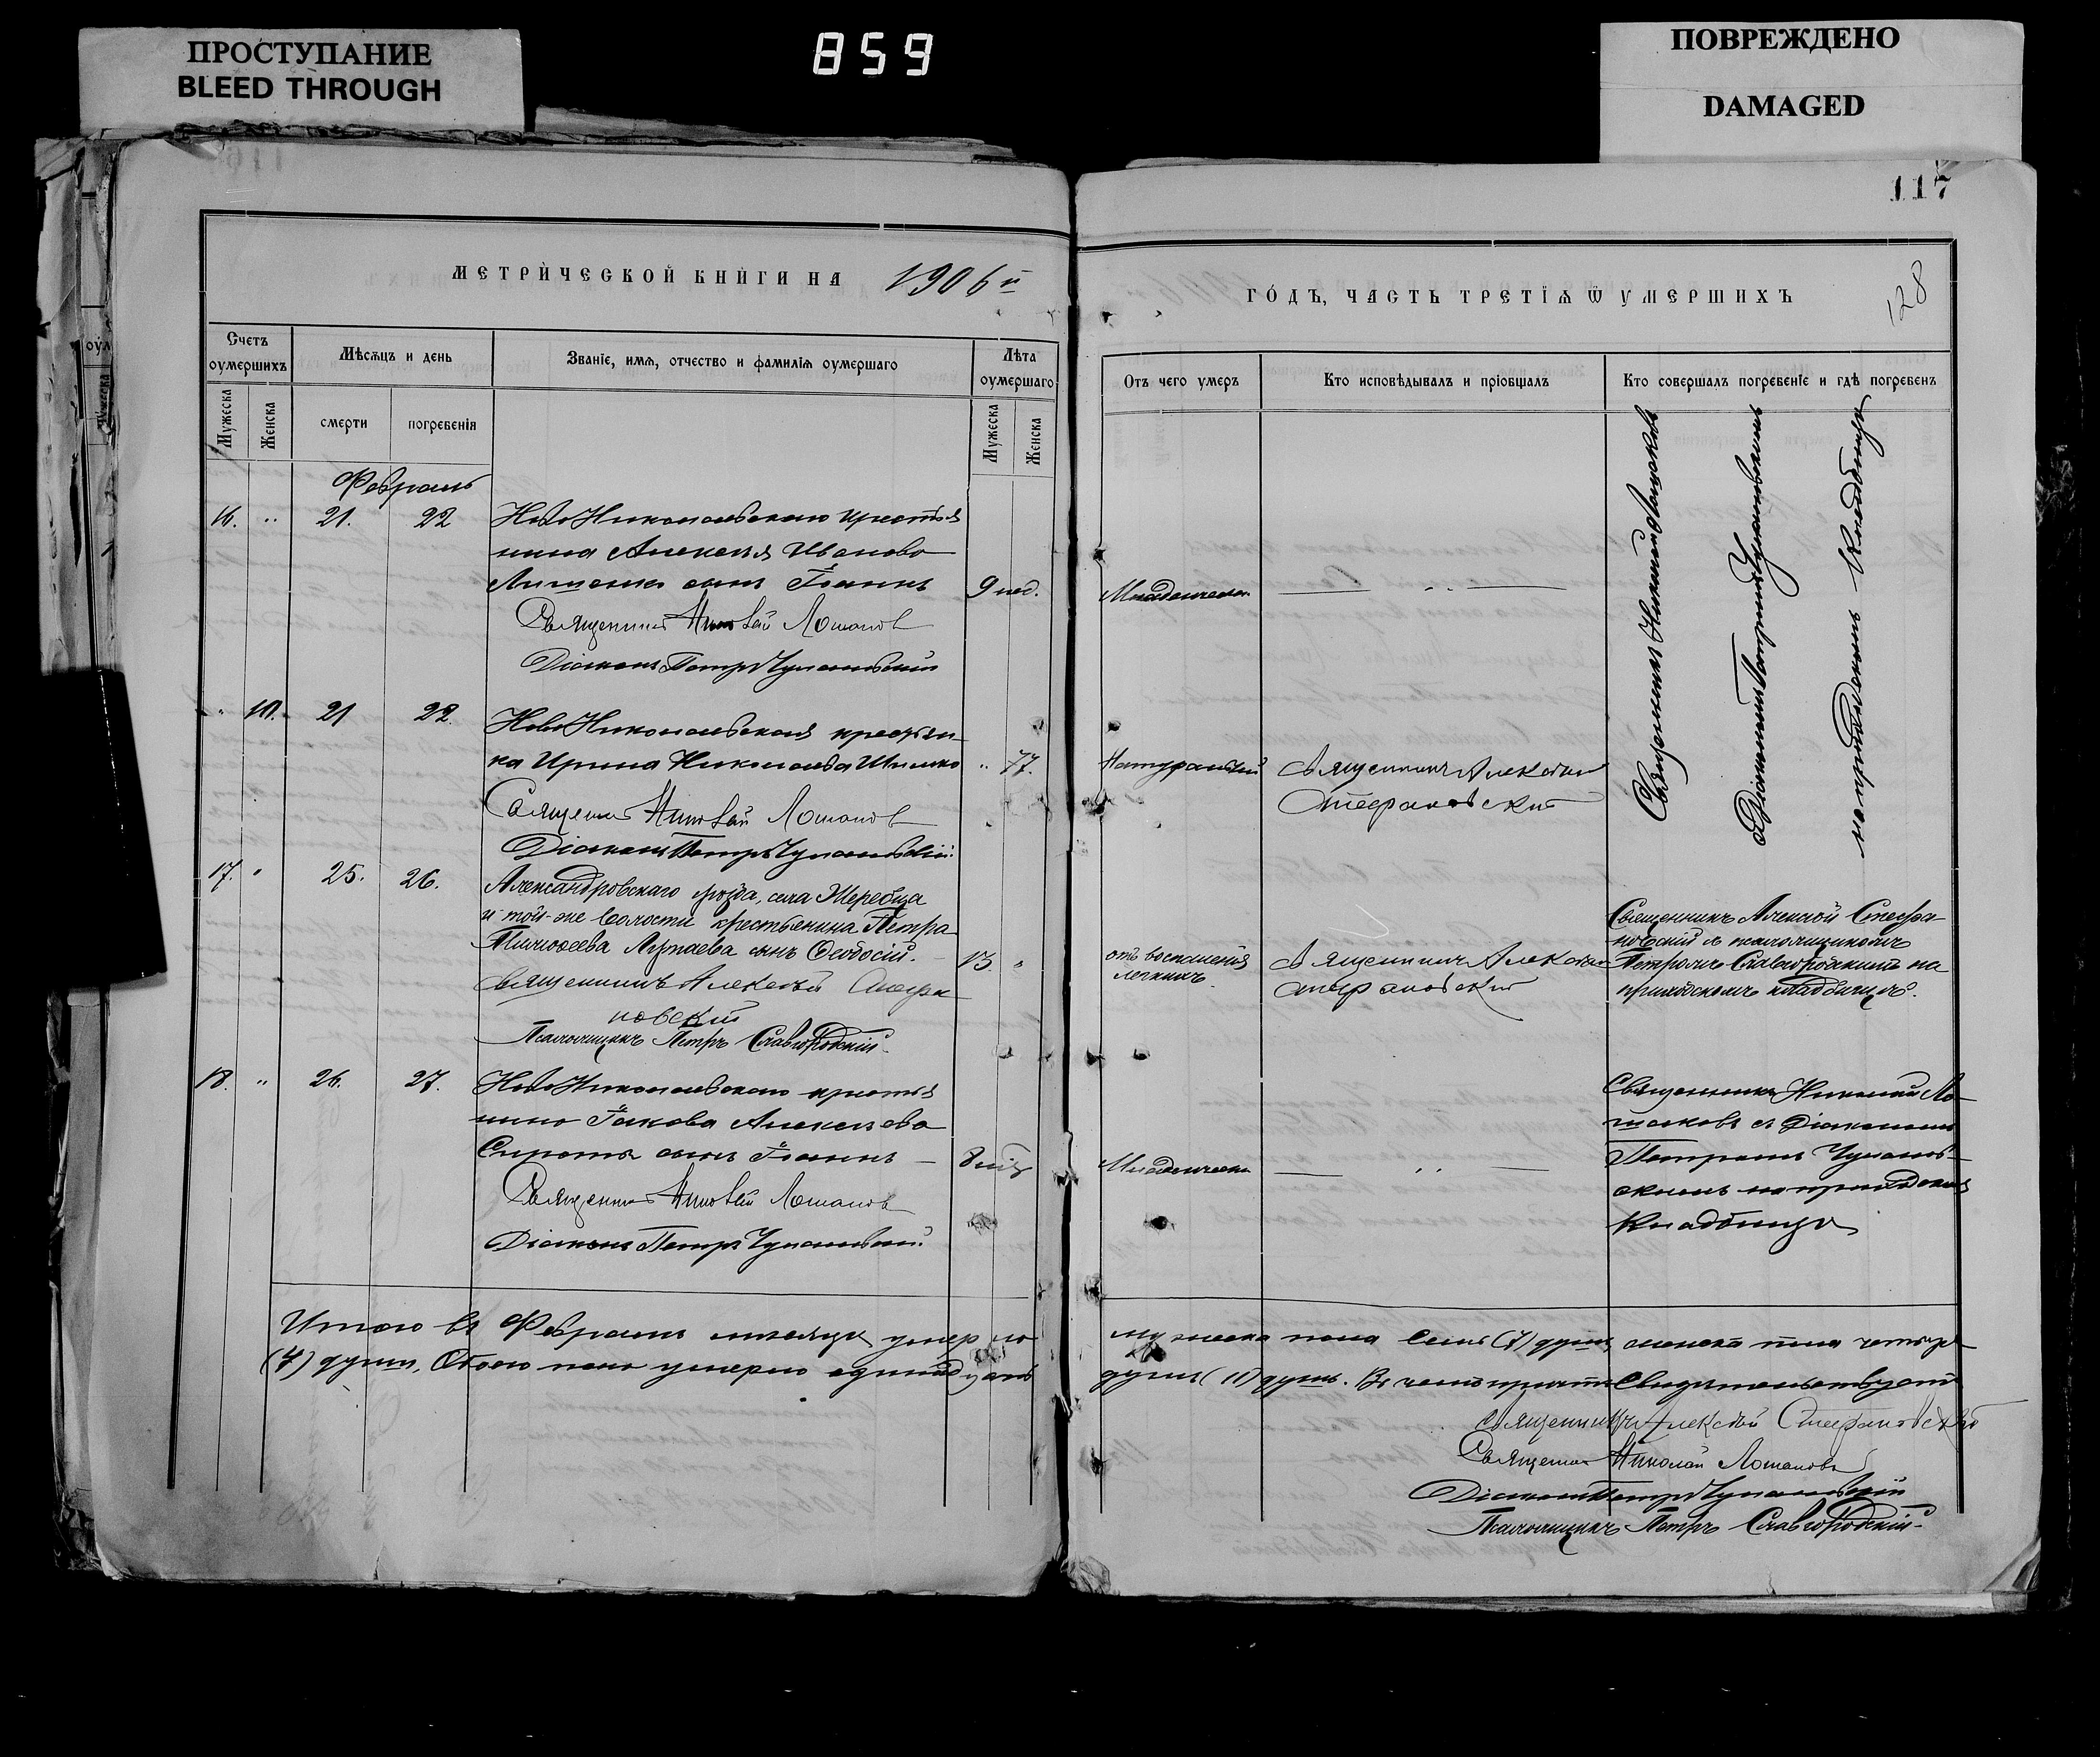 ПРОСТУПАНИЕ
BLEED THROUGH
859
ПОВРЕЖДЕНО
DAMAGED
117
МЕТРИЧЕСКОЙ КНИГИ НА 1906 й
Счетъ оумершихъ
Мужеска
Женска
Мѣсяцъ и день
смерти
погребенія
Званіе, имя, отчество и фамилія оумершаго
Лѣта оумершаго
Мужеска
Женска
Февраль
16. " 21. 22 НовоНиколаевскаго крестья
нина Алексѣя Иванова
сынъ Іоаннъ 9 нед.
Священникъ Николай Лошаков
Діаконъ Петръ Чулановскій
" 10. 21 22. НовоНиколаевская крестьян-
ка Ирина Николаева " 77.
Священникъ Николай Лошаков
Діаконъ Петръ Чулановскій
17. " 25. 26. Александровскаго уѣзда, села Жеребца
и той-же волости крестьянина Петра
сынъ Ѳеодосій. 13 "
Священникъ Алексѣй Стефа
новскій
Псаломщикъ Петръ Славгородскій
18. " 26. 27. НовоНиколаевскаго крестья
нина Іакова Алексѣева
Сироты сынъ Іоаннъ —
Священникъ Николай Лошаков
Діаконъ Петръ Чулановскій
Итого въ Февралѣ мѣсяцѣ умерло
(4) души, Обоего пола умерло одиннадцать
ГОДЪ, ЧАСТЬ ТРЕТІЯ Ѿ УМЕРШИХЪ
128
Отъ чего умеръ
Кто исповѣдывалъ и пріобщалъ
Кто совершалъ погребеніе и гдѣ погребенъ
Священникъ Николай Лошаковъ
съ Діакономъ Петромъ Чулановскимъ
на приходскомъ кладбищѣ
Младенческ. — " —
Натуральной Священникъ Алексѣй
Стефановскій
отъ воспаленія
легкихъ.
Священникъ Алексѣй
Стефановскій
Священникъ Алексій Стефа-
новскій съ псаломщикомъ
Петромъ Славгородскимъ на
приходскомъ кладбищѣ.
Младенческ. — " —
Священникъ Николай Ло-
шаковъ съ Діакономъ
Петромъ Чуланов-
скимъ на приходскомъ
кладбищѣ
мужеска пола семь (7) душъ, женска пола четыре
душъ (11) душъ. Въ чемъ свидѣтельствуемъ
Священникъ Алексѣй Стефановскій
Священникъ Николай Лошаковъ
Діаконъ Петръ Чулановскій
Псаломщикъ Петръ Славгородскій